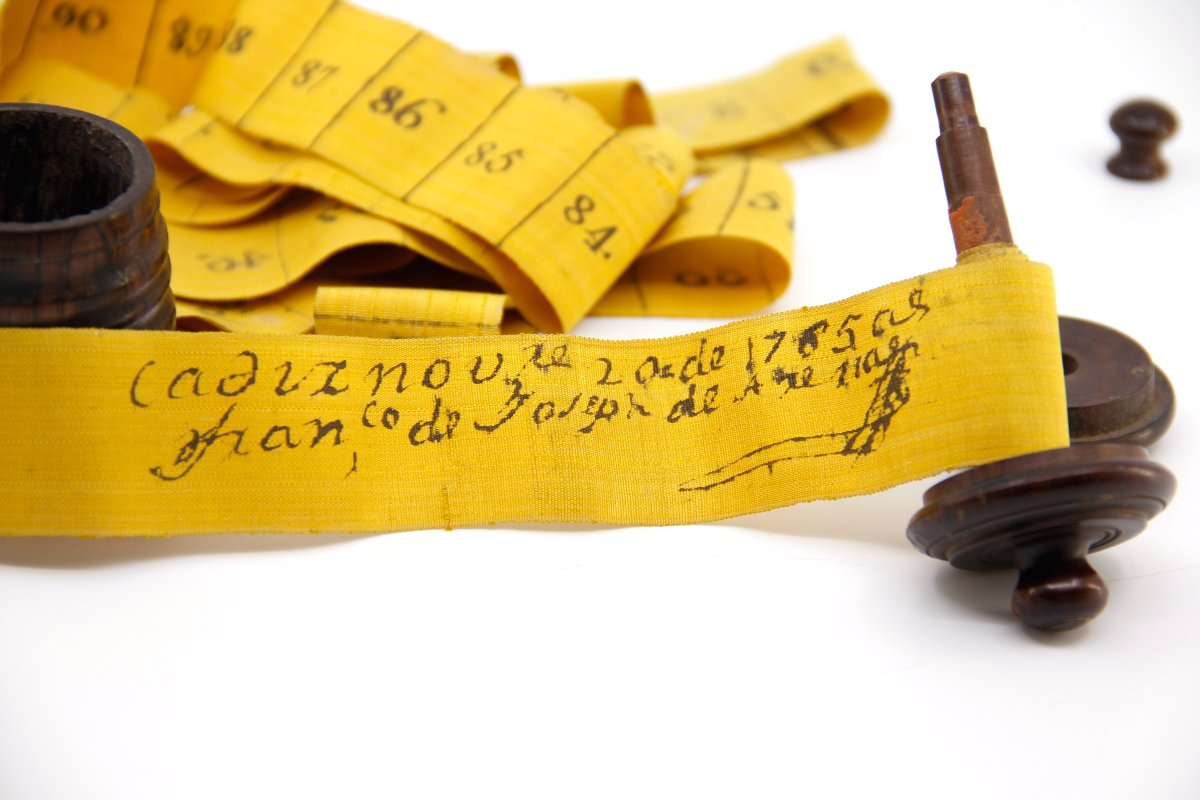 90
89
88
87
86
85
84.
Cadiz nov.re 20 de 1785 as
fran.co de Joseph de